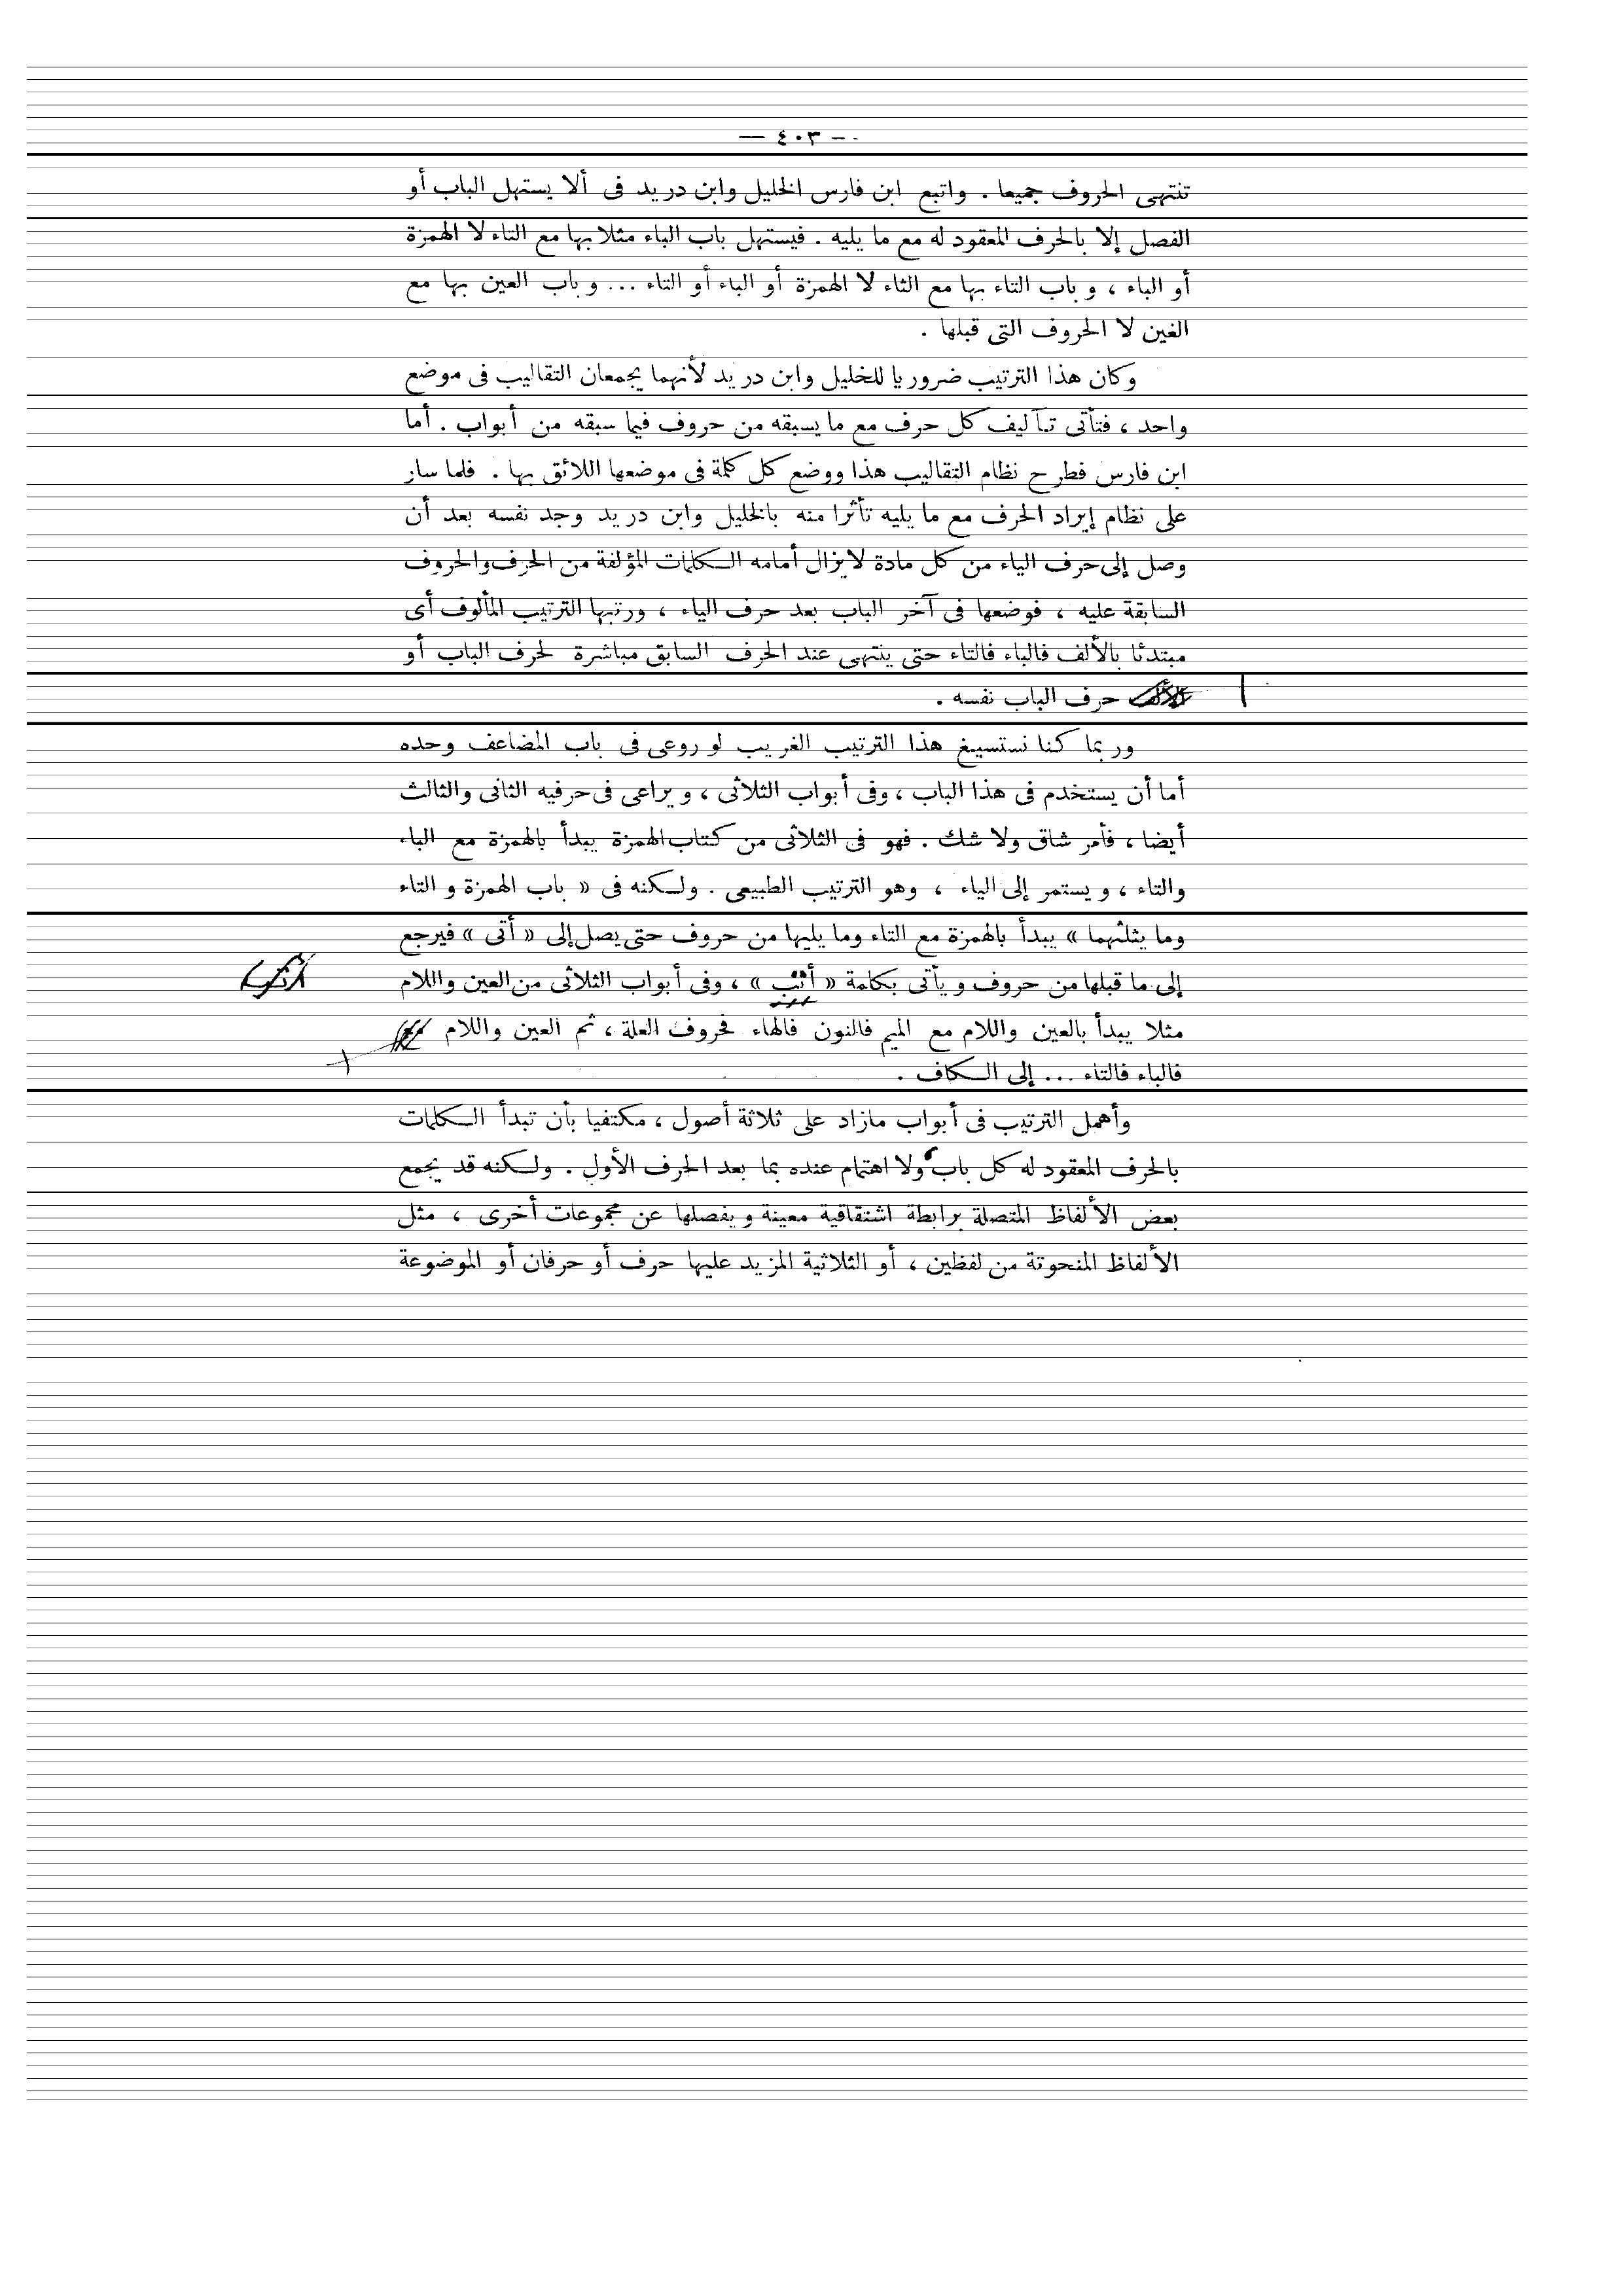 — ٤٠٣ —
تنتهى الحروف جميعا . واتبع ابن فارس الخليل وابن دريد فى ألا يستهل الباب أو
الفصل إلا بالحرف المعقود له مع ما يليه . فيستهل باب الباء مثلا بها مع التاء لا الهمزة
أو الباء ، و باب التاء بها مع الثاء لا الهمزة أو الباء أو التاء ... و باب العين بها مع
الغين لا الحروف التى قبلها .
وكان هذا الترتيب ضروريا للخليل وابن دريد لأنهما يجمعان التقاليب فى موضع
واحد ، فتأتى تآليف كل حرف مع ما يسبقه من حروف فيما سبقه من أبواب . أما
ابن فارس فطرح نظام التقاليب هذا ووضع كل كلمة فى موضعها اللائق بها . فلما سار
على نظام إيراد الحرف مع ما يليه تأثرا منه بالخليل وابن دريد وجد نفسه بعد أن
وصل إلى حرف الياء من كل مادة لا يزال أمامه الكلمات المؤلفة من الحرف والحروف
السابقة عليه ، فوضعها فى آخر الباب بعد حرف الياء ، ورتبها الترتيب المألوف أى
مبتدئا بالألف فالباء فالتاء حتى ينتهى عند الحرف السابق مباشرة لحرف الباب أو
حرف الباب نفسه .
وربما كنا نستسيغ هذا الترتيب الغريب لو روعى فى باب المضاعف وحده
أما أن يستخدم فى هذا الباب ، وفى أبواب الثلاثى ، و يراعى فى حرفيه الثانى والثالث
أيضا ، فأمر شاق ولا شك . فهو فى الثلاثى من كتاب الهمزة يبدأ بالهمزة مع الباء
والتاء ، و يستمر إلى الياء ، وهو الترتيب الطبيعى . ولكنه فى « باب الهمزة و التاء
وما يثلثهما » يبدأ بالهمزة مع التاء وما يليها من حروف حتى يصل إلى « أتى » فيرجع
إلى ما قبلها من حروف و يأتى بكلمة « أتب » ، وفى أبواب الثلاثى من العين واللام
مثلا يبدأ بالعين واللام مع الميم فالنون فالهاء فحروف العلة ، ثم العين واللام
فالباء فالتاء ... إلى الكاف .
وأهمل الترتيب فى أبواب مازاد على ثلاثة أصول ، مكتفيا بأن تبدأ الكلمات
بالحرف المعقود له كل باب ولا اهتمام عنده بما بعد الحرف الأول . ولكنه قد يجمع
بعض الألفاظ المتصلة برابطة اشتقاقية معينة و يفصلها عن مجموعات أخرى ، مثل
الألفاظ المنحوتة من لفظين ، أو الثلاثية المزيد عليها حرف أو حرفان أو الموضوعة